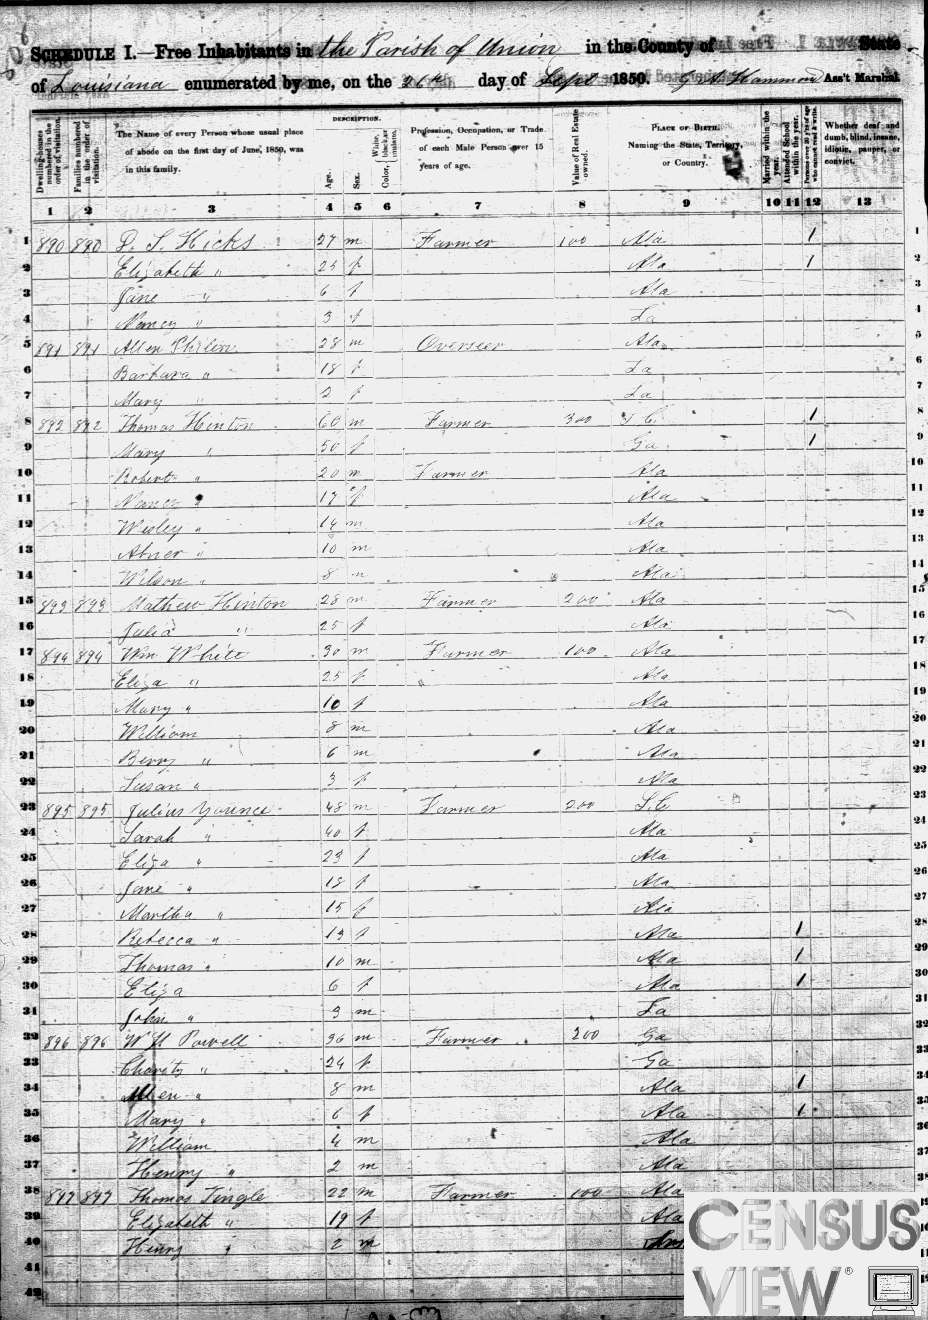 SCHEDULE I.—Free Inhabitants in the Parish of Union in the County of State
of Louisiana enumerated by me, on the 26th day of Sept 1850. Hammond Ass't Marshal.
Dwelling-houses numbered in the order of visitation.
Families numbered in the order of visitation.
The Name of every Person whose usual place of abode on the first day of June, 1850, was in this family.
DESCRIPTION.
Age.
Sex.
Color, White, black, or mulatto.
Profession, Occupation, or Trade of each Male Person over 15 years of age.
Value of Real Estate owned.
PLACE OF BIRTH. Naming the State, Territory, or Country.
Married within the year.
Attended School within the year.
Persons over 20 y'rs of age who cannot read & write.
Whether deaf and dumb, blind, insane, idiotic, pauper, or convict.
1 2 3 4 5 6 7 8 9 10 11 12 13
1 890 890 Hicks 27 m Farmer 100 Ala 1 1
2 Elizabeth " 25 f Ala 1 2
3 Jane " 6 f Ala 3
4 Nancy " 3 f La 4
5 891 891 Allen 28 m Overseer Ala 5
6 Barbara " 18 f La 6
7 Mary " 2 f La 7
8 892 892 Thomas Hinton 60 m Farmer 300 1 8
9 Mary " 50 f Ga 1 9
10 Robert " 20 m Farmer Ala 10
11 Nancy " 17 f Ala 11
12 Wesley " 14 m Ala 12
13 Abner " 10 m Ala 13
14 Wilson " 8 m Ala 14
15 893 893 Mathew Hinton 28 m Farmer 200 Ala 15
16 Julia " 25 f Ala 16
17 894 894 Wm White 30 m Farmer 100 Ala 17
18 Eliza " 25 f Ala 18
19 Mary " 10 f Ala 19
20 William 8 m Ala 20
21 Berry " 6 m Ala 21
22 Susan " 3 f Ala 22
23 895 895 Julius Younce 48 m Farmer 200 S.C 23
24 Sarah " 40 f Ala 24
25 Eliza " 23 f Ala 25
26 Jane " 18 f Ala 26
27 Martha " 15 f Ala 27
28 Rebecca " 13 f Ala 1 28
29 Thomas " 10 m Ala 1 29
30 Eliza 6 f Ala 1 30
31 John " 3 m La 31
32 896 896 W H Powell 36 m Farmer 200 Ga 32
33 Charity " 24 f Ga 33
34 Allen " 8 m Ala 1 34
35 Mary " 6 f Ala 1 35
36 William 4 m Ala 36
37 Henry " 2 m Ala 37
38 897 897 Thomas Tingle 22 m Farmer 100 Ala
39 Elizabeth " 19 f Ala
40 Henry " 2 m
41
42
CENSUS
VIEW®